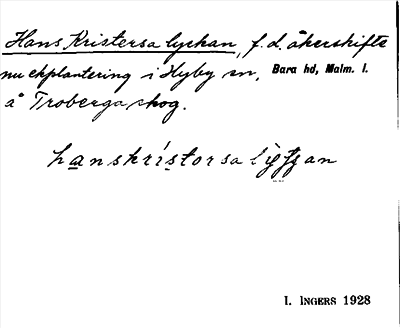 Hans Kristersa lyckan, f. d. åkerskifte
nu ekplantering i Hyby sn, Bara hd, Malm. l.
å Troberga skog.
hanskristorsa
I. INGERS 1928